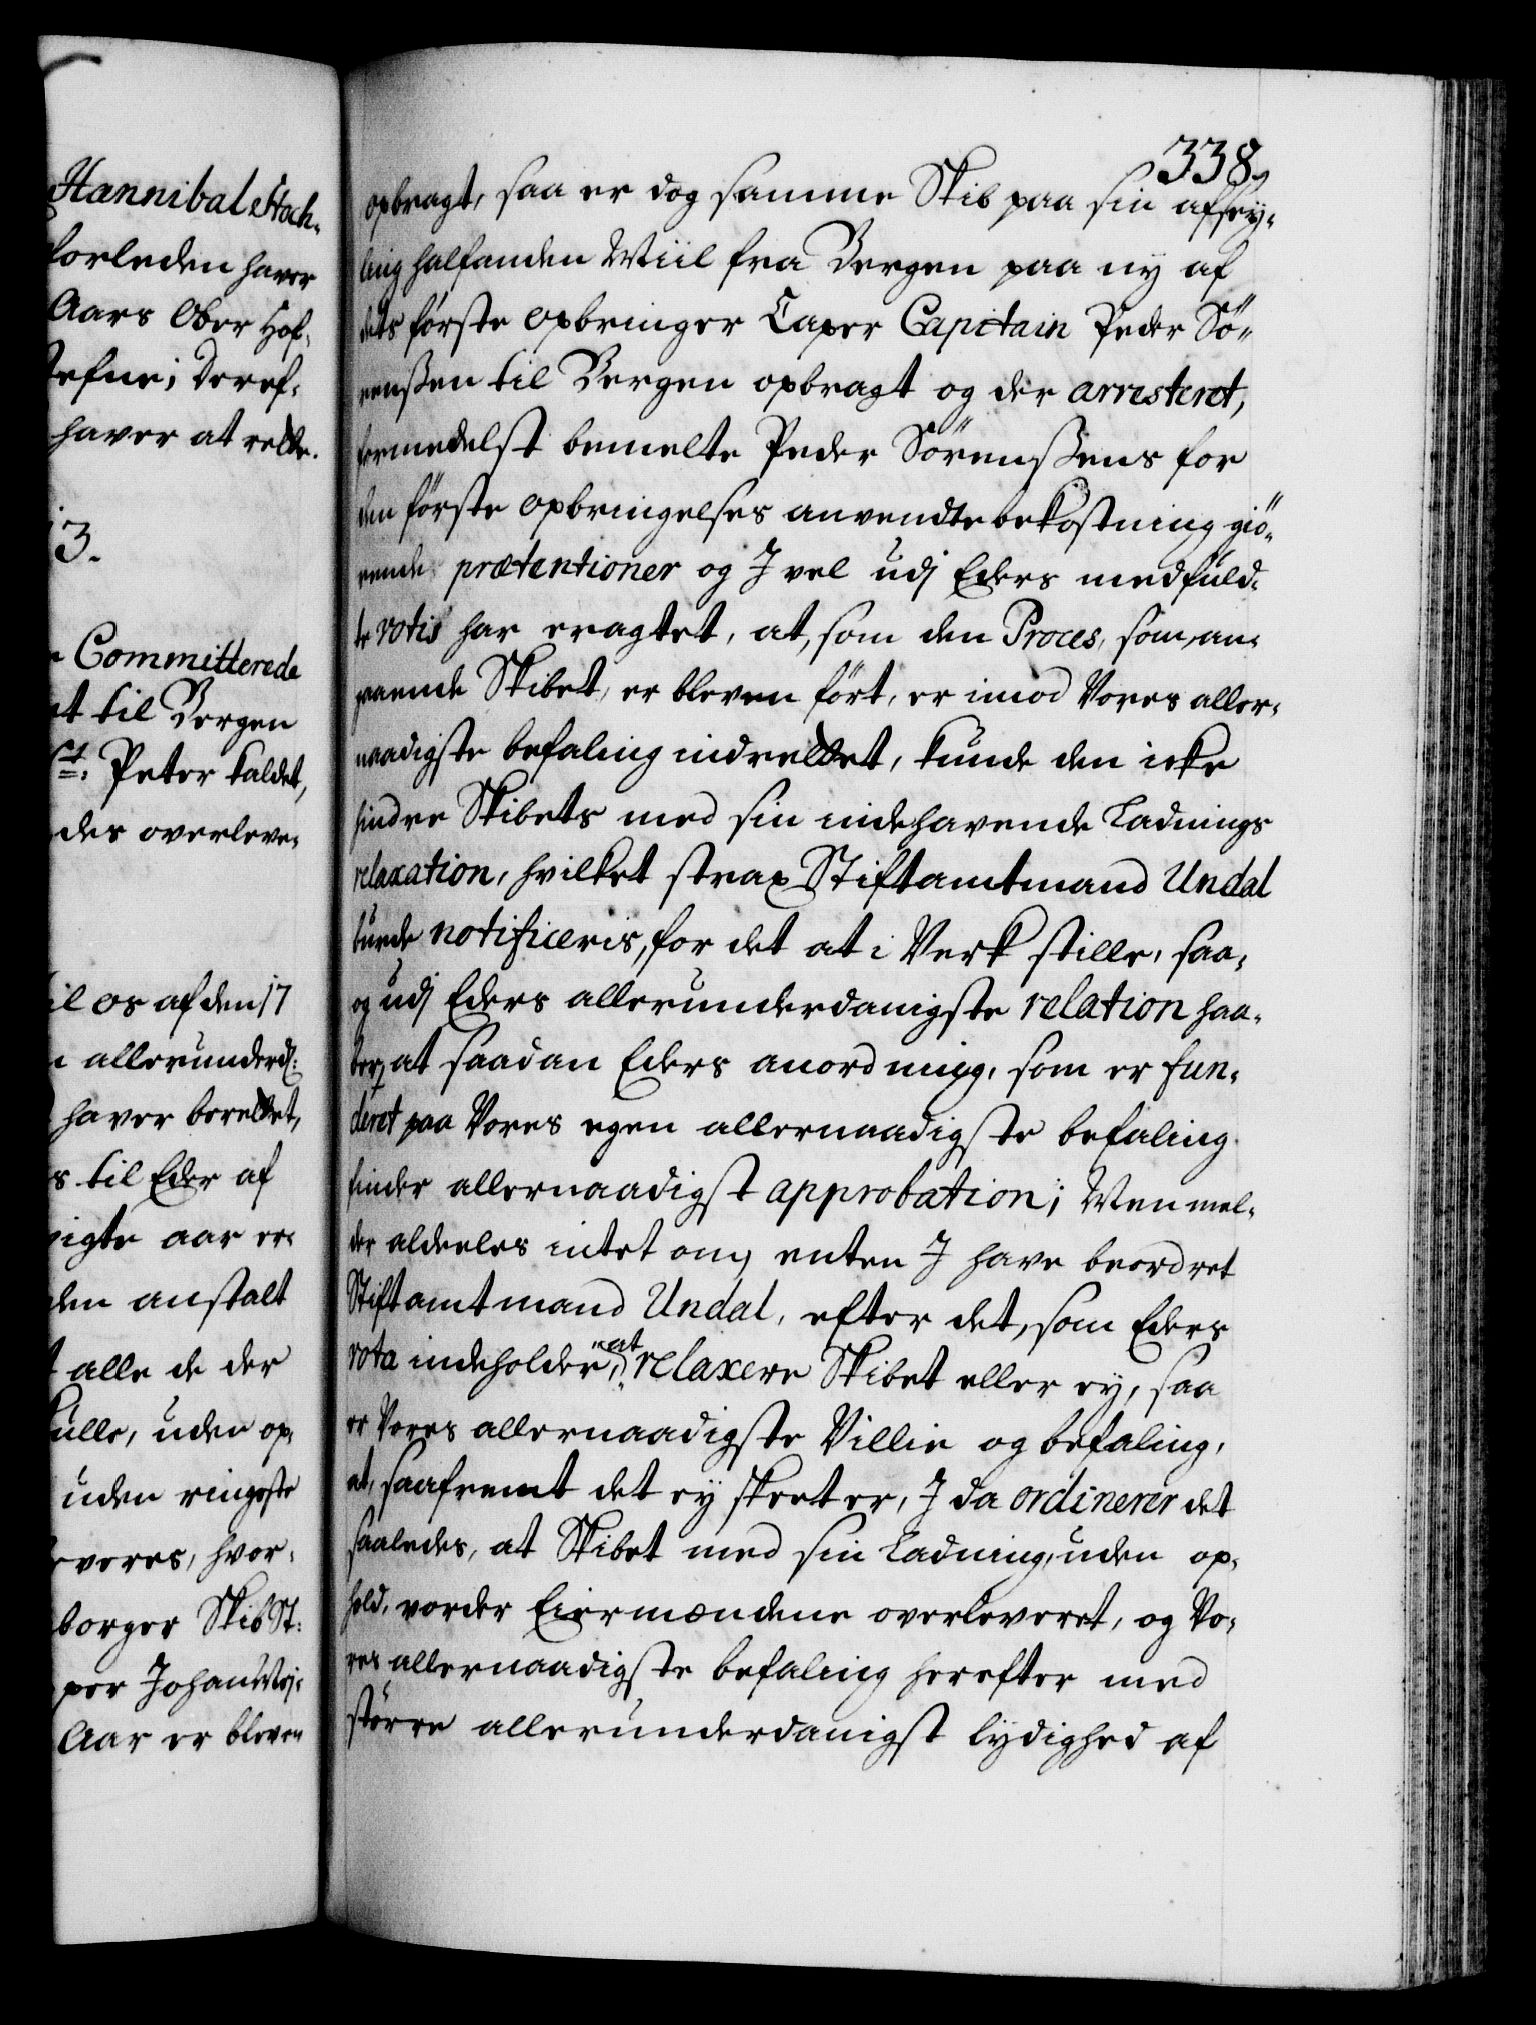 Hannibal Stock-
forleden haver
Aars Ober Hof-
stefne; deref-
haver at rette.
13.
Committerede
til Bergen
St: Peter kaldet,
des overleve-
til os af den 17
allerunderd:
haver berettet,
til Eder af
aar er-
den anstalt
alle de der
uden op-
uden ringeste
hvor-
borger Skib St:
per Johan
Aar er bleven
338.
opbragt, saa er dog samme Skib paa sin afsey-
ling halfanden Miil fra Bergen paa ny af
dets förste opbringer Caper Capitain Peder Sö-
renßen til Bergen opbragt og der arresteret,
formedelst bemelte Peder Sörenßens for
den förste opbringelses anvendte bekostning giö-
rende prætentioner og I vel udj Eders medfuld-
te votis har eragtet, at, som den Proces, som an-
gaaende Skibet, er bleven fört, er imod Vores aller-
naadigste befaling indrettet, kunde den icke
hindre Skibets med sin indehavende Ladnings
relaxation, hvilket strax Stiftamtmand Undal
burde notificeris, for det at i Verk stille, saa-
og udj Eders allerunderdanigste relation haa-
ber, at saadan Eders anordning, som er fun-
deret paa Vores egen allernaadigste befaling
finder allernaadigst approbation; Men mel-
der aldeeles intet om, enten I have beordret
Stiftamtmand Undal, efter det, som Eders
vota indeholder, at relaxere Skibet eller ey, saa
er Vores allernaadigste Villie og befaling,
at, saafremt det ey skeet er, I da ordinerer det
saaledes, at Skibet med sin Ladning, uden op-
hold, vorder Eiermændene overleveret, og Vo-
res allernaadigste befaling herefter med
större allerunderdanigst lydighed af